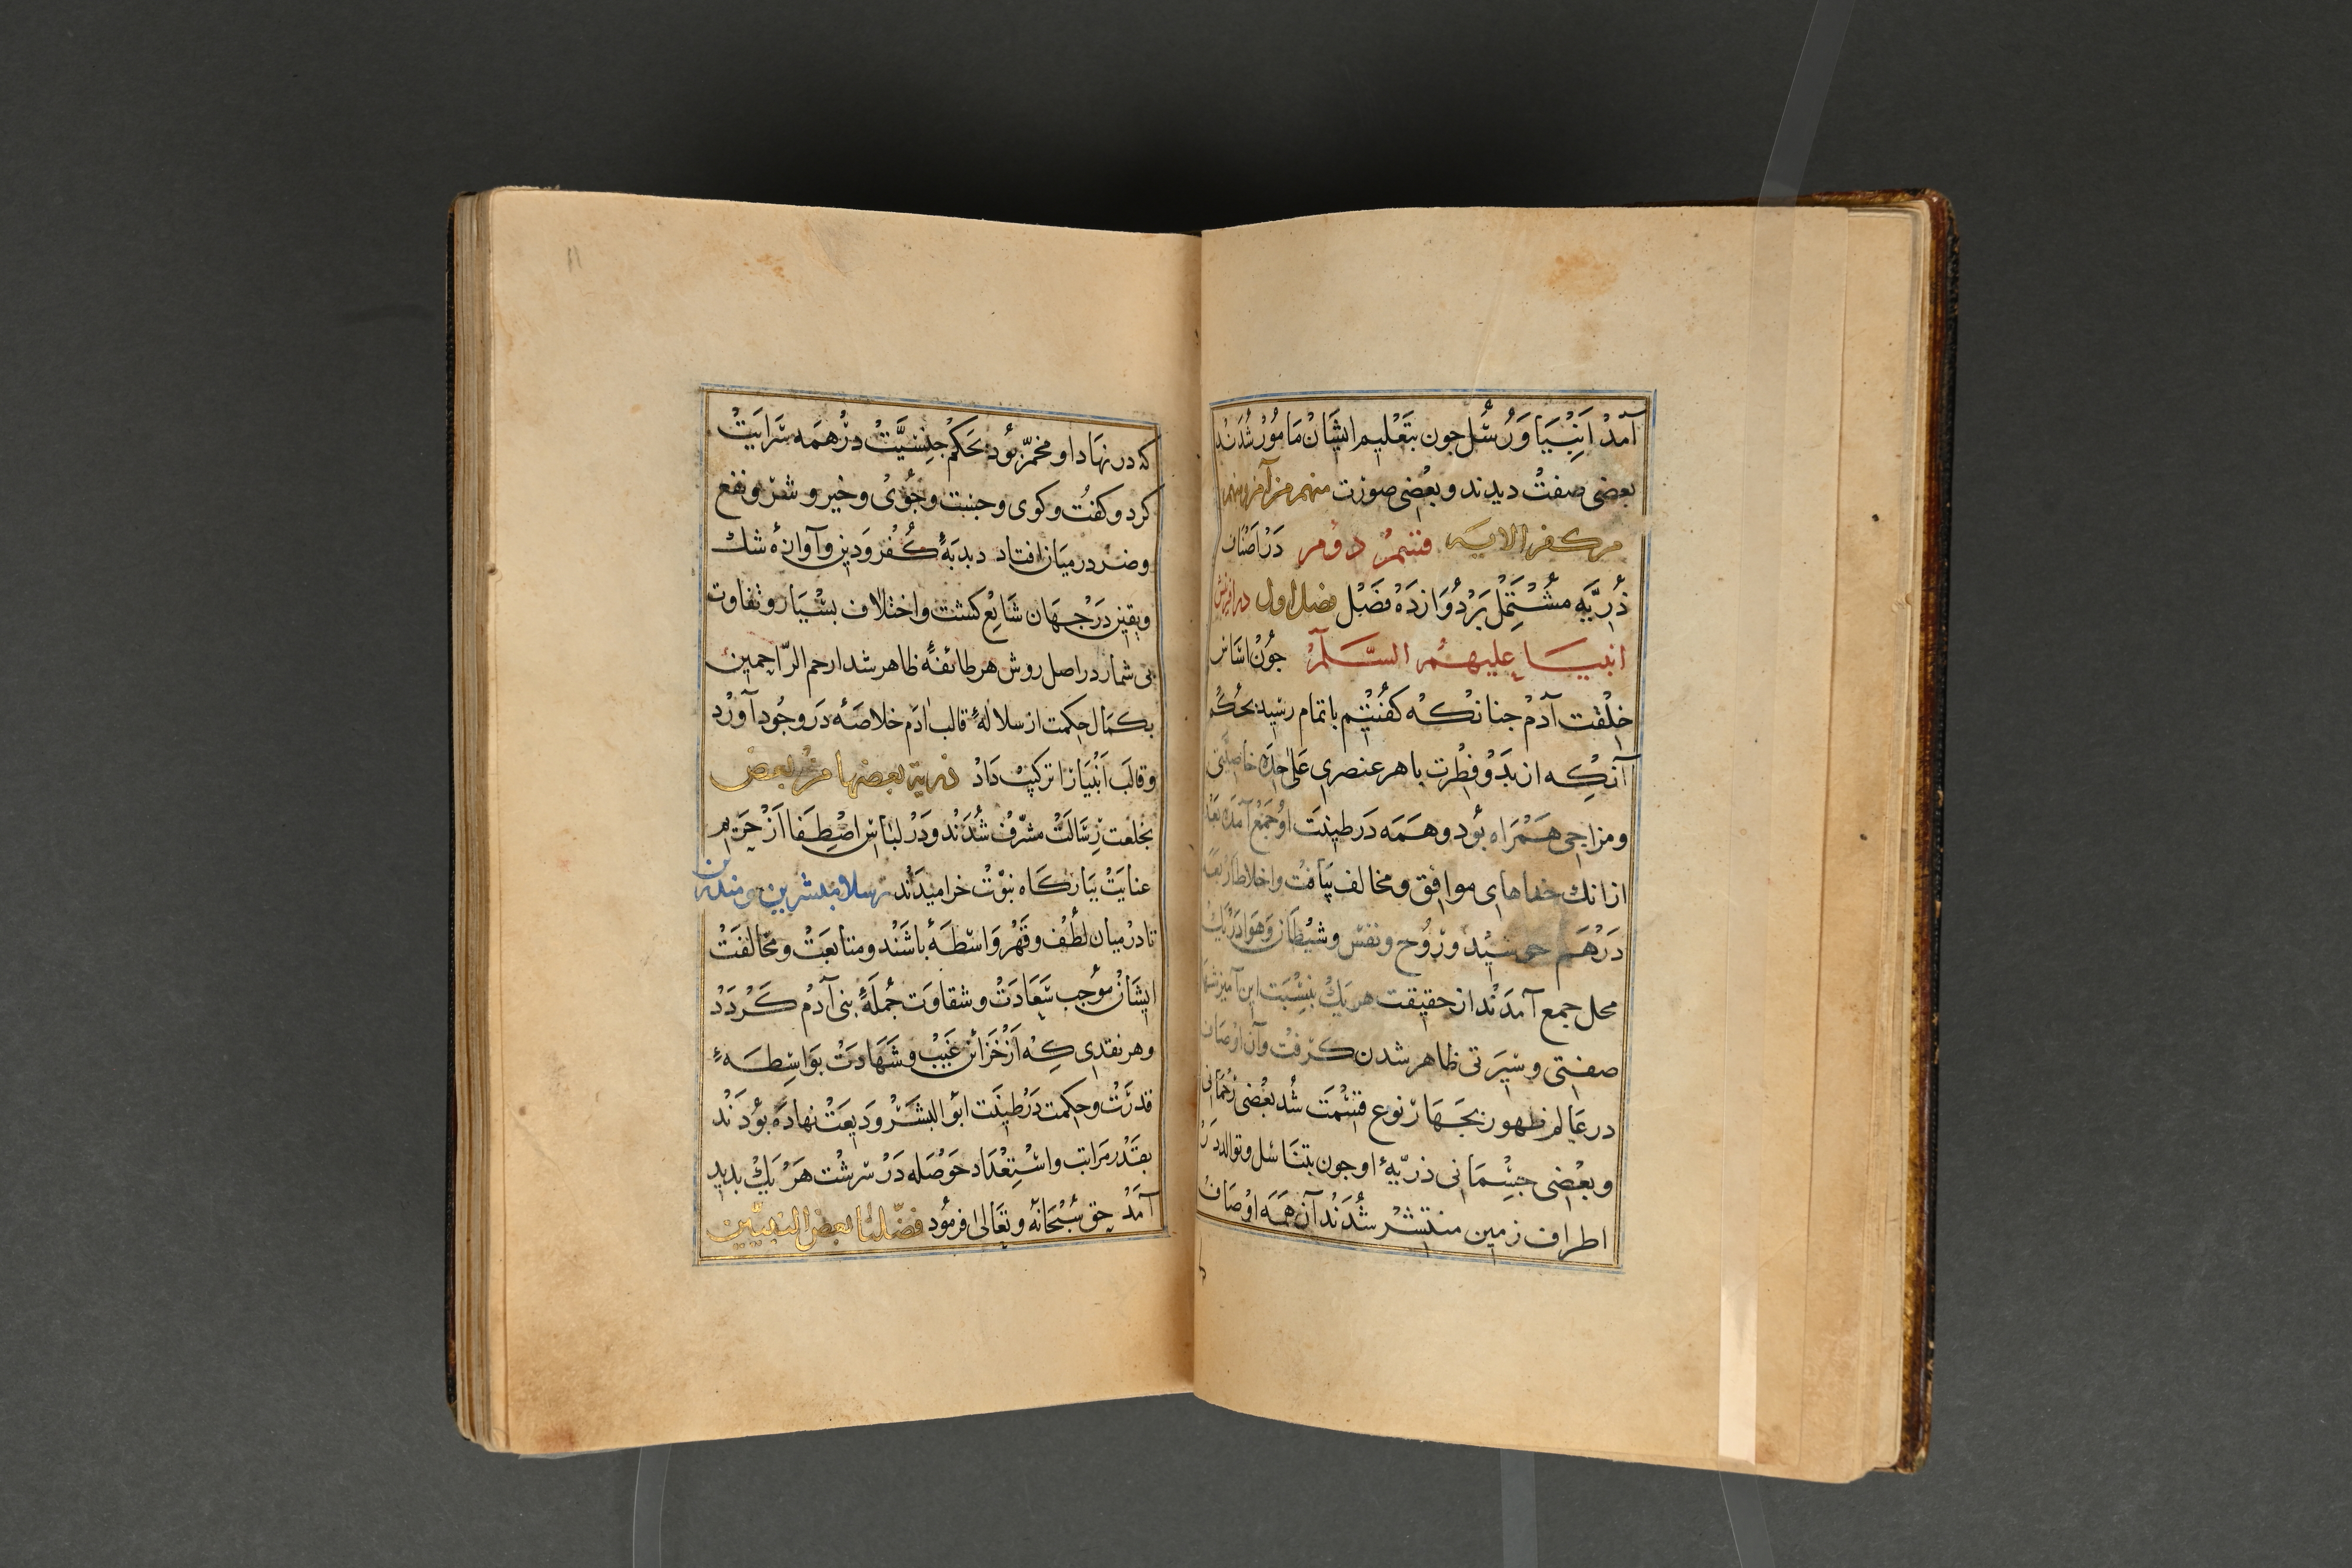 آمَدْ اَنْبِیَا وَرُسُل جون بتَعْلیم ایشَانْ مَامُوْر شُدَنْد
بعضی صفتْ دیدند وبعْضی صوزت منهم من آمن ومنهم
من كفر الایه قسم دوم دَرْ اَصْنَاف
ذُرِیَّه مُشْتَمِل بَرْدُوَازدَهْ فَصْل فصل اول در افرینش
انبیا علیهم السَّلَام جُوْن اساس
خِلْقت آدمْ جنانكه كفُتیم باتمام رسْید بحُكْم
آنكِه از بَدْوْ فِطْرت با هر عنصری عَلیٰ حِدَه خاصیَّتی
ومزاجی هَمْرَاه بُود وهَمَه دَر طینَت اوْ جَمْع آمَده بعْد
ازانك خلطهای موافق ومخالف یَافتْ واخلاط اربعَه
دَرْهَم جوشیْد ورُوْح ونفسْ وشیْطَان وَهَوا دَرْیَك
محل جمع آمَدَنْد از حقیقت هریَكْ بنِسْبَت این آمیزشها
صفتی وسْیَرتی ظاهر شدن كرفتْ وآن اوْصَاف
درعَالم ظهور بجَهَار نوع قسْمَت شُد بعْضی رُحَانی
وبعْضی جسْمَانی ذرّیّهٔ او جون بتنَاسُل وتوالد دَرْ
اطراف زمین منتشرْ شُدَنْد آن هَمَه اوْصَافْ
كه در نهَاد او مخمّر بُود بحَكمْ جِنسِیَّتْ درْهمَه سَرایَتْ
كرد وكفتُ وكوی وجنبت وجُوْیْ وخیر وشرّ ونفع
وضرّ درمیَان افتاد دبدبَهٔ كُفْر وَدین وآوازهٔ شك
ویقین دَرْجهَان شَایعْ كشت واختلاف بسْیَار وتفاوت
بی شمار در اصل روش هر طائفهٔ ظاهر شد ارحم الرّاحمین
بكمَال حِكمت از سلالهٔ قالب ادَم خلاصَهٔ دَروجُود آوَرْد
وقالَب اَنْبیَا را تركیبْ دَادْ ذریة بعضها من بعض
بخلعت رِسَالَتْ مشرّفْ شُدَنْد ودَرْ لبَاسِ اصْطِفَا اَزْ حَریم
عنایَتْ ببَارْكَاه نبوّتْ خرامیدَنْد رسلا مبشرین ومنذرین
تا درْمیان لُطْف وقَهْر وَاسْطَهْ باشَنْد ومتابعَتْ ومخالفَتْ
ایشَانْ مُوْجب سَعَادَتْ وشقاوَت جُملَهٔ بنی آدمْ كَرْدَدْ
وهر نقدی كِه اَزْ خَزَائن غَیْبْ وشَهَادَتْ بوَاسِطَهٔ
قدرَتْ وحِكمت دَرْطینَت ابُو البَشَرْ وَدیعَتْ نهادَه بُودَنْد
بقَدْر مرَاتب واسْتِعْدَاد حَوْصَله دَرْ سرشْت هَرْیَكْ بدید
آمَدْ حق سُبْحَانه وتعَالی فرمُود فضّلنا بعض النبیّین